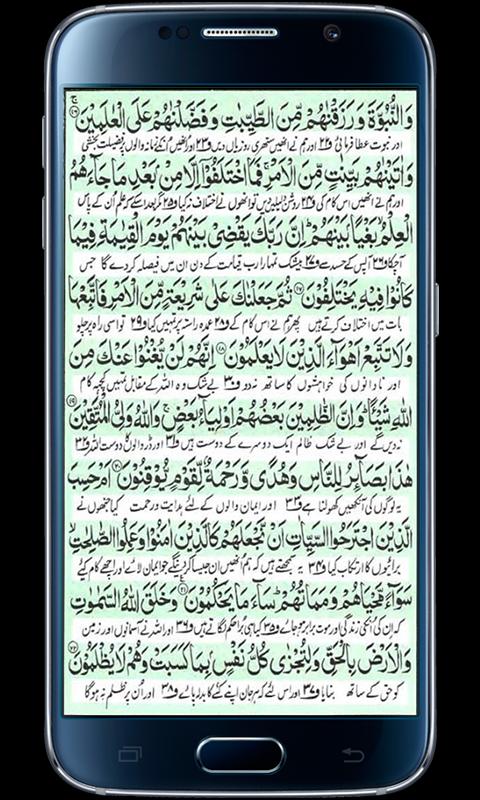 وَالنُّبُوَّةَ وَرَزَقْنٰهُمْ مِّنَ الطَّيِّبٰتِ وَفَضَّلْنٰهُمْ عَلَى الْعٰلَمِيْنَ ۝۱۶
اور نبوت عطا فرمائی و۲۲ اور ہم نے انہیں ستھری روزیاں دیں و۲۳ اور انہیں انکے زمانہ والوں پر فضیلت بخشی
وَاٰتَيْنٰهُمْ بَيِّنٰتٍ مِّنَ الْاَمْرِ فَمَا اخْتَلَفُوْٓا اِلَّا مِنْۢ بَعْدِ مَا جَآءَهُمُ
اور ہم نے انہیں اس کام کی و۲۴ روشن دلیلیں دیں تو انھوں نے اختلاف نہ کیا و۲۵ مگر بعد اسکے کہ علم ان کے پاس
الْعِلْمُ بَغْيًۢا بَيْنَهُمْ اِنَّ رَبَّكَ يَقْضِيْ بَيْنَهُمْ يَوْمَ الْقِيٰمَةِ فِيْمَا
آچکا و۲۶ آپس کے حسد سے و۲۷ بیشک تمہارا رب قیامت کے دن ان میں فیصلہ کردے گا جس
كَانُوْا فِيْهِ يَخْتَلِفُوْنَ ۝۱۷ ثُمَّ جَعَلْنٰكَ عَلٰى شَرِيْعَةٍ مِّنَ الْاَمْرِ فَاتَّبِعْهَا
بات میں اختلاف کرتے ہیں پھر ہم نے اس کام کے و۲۸ عمدہ راستہ پر تمہیں کیا و۲۹ تو اسی راہ پر چلو
وَلَا تَتَّبِعْ اَهْوَآءَ الَّذِيْنَ لَا يَعْلَمُوْنَ ۝۱۸ اِنَّهُمْ لَنْ يُّغْنُوْا عَنْكَ مِنَ
اور نادانوں کی خواہشوں کا ساتھ نہ دو و۳۰ بے شک وہ اللہ کے مقابل تمہیں کچھ کام
اللّٰهِ شَيْـًٔا وَاِنَّ الظّٰلِمِيْنَ بَعْضُهُمْ اَوْلِيَآءُ بَعْضٍ وَاللّٰهُ وَلِيُّ الْمُتَّقِيْنَ ۝۱۹
نہ دیں گے اور بے شک ظالم ایک دوسرے کے دوست ہیں و۳۱ اور ڈر والوں کا دوست اللہ و۳۲
هٰذَا بَصَآئِرُ لِلنَّاسِ وَهُدًى وَّرَحْمَةٌ لِّقَوْمٍ يُّوْقِنُوْنَ ۝۲۰ اَمْ حَسِبَ
یہ لوگوں کی آنکھیں کھولنا ہے و۳۳ اور ایمان والوں کے لئے ہدایت و رحمت کیا جنھوں نے
الَّذِيْنَ اجْتَرَحُوا السَّيِّاٰتِ اَنْ نَّجْعَلَهُمْ كَالَّذِيْنَ اٰمَنُوْا وَعَمِلُوا الصّٰلِحٰتِ
برائیوں کا ارتکاب کیا و۳۴ یہ سمجھتے ہیں کہ ہم انہیں ان جیسا کردینگے جو ایمان لائے اور اچھے کام کئے
سَوَآءً مَّحْيَاهُمْ وَمَمَاتُهُمْ سَآءَ مَا يَحْكُمُوْنَ ۝۲۱ وَخَلَقَ اللّٰهُ السَّمٰوٰتِ
کہ ان کی انکی زندگی اور موت برابر ہوجائے و۳۵ کیا ہی برا حکم لگاتے ہیں و۳۶ اور اللہ نے آسمانوں اور زمین
وَالْاَرْضَ بِالْحَقِّ وَلِتُجْزٰى كُلُّ نَفْسٍۭ بِمَا كَسَبَتْ وَهُمْ لَا يُظْلَمُوْنَ ۝۲۲
کو حق کے ساتھ بنایا و۳۷ اور اس لئے کہ ہر جان اپنے کئے کا بدلہ پائے و۳۸ اور ان پر ظلم نہ ہوگا